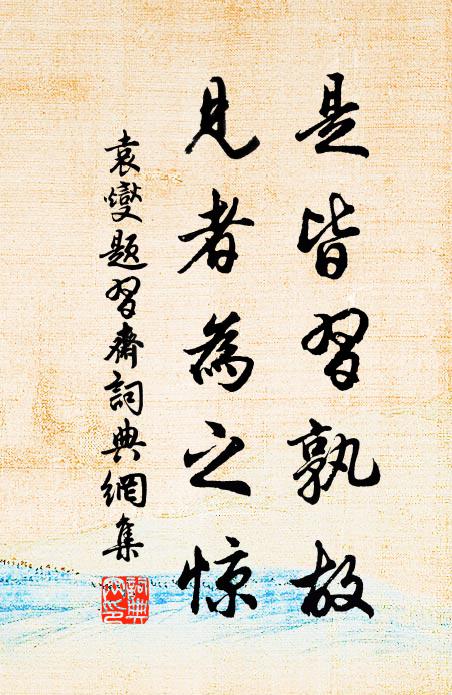 是皆習孰故
見者為之惊
袁燮題習齋詞典網集